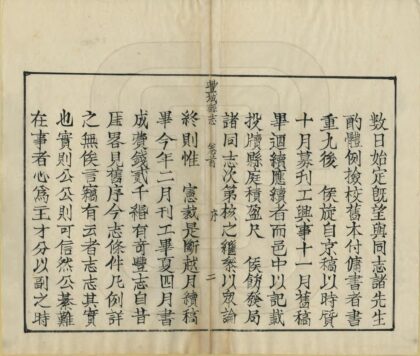 數日始定旣望與同志諸先生
酌體例挍校舊本付傭書者書
重九後　侯旋自京稿以時質
十月募刊工興事十一月舊稿
畢廼續應續者而邑中以記載
投牘縣庭積盈尺　侯飭發局
諸同志次第核之繼泰以眾論
豐城縣志
卷首
序
二
終則惟　憲裁是斷越月續稿
畢今年二月刊工畢夏四月書
成費錢貳千緡有奇豐志自昔
匡畧見舊序今志條件凡例詳
之無俟言竊有云者志志其實
也實則公公則可信然公綦難
在事者心爲王才分以副之時